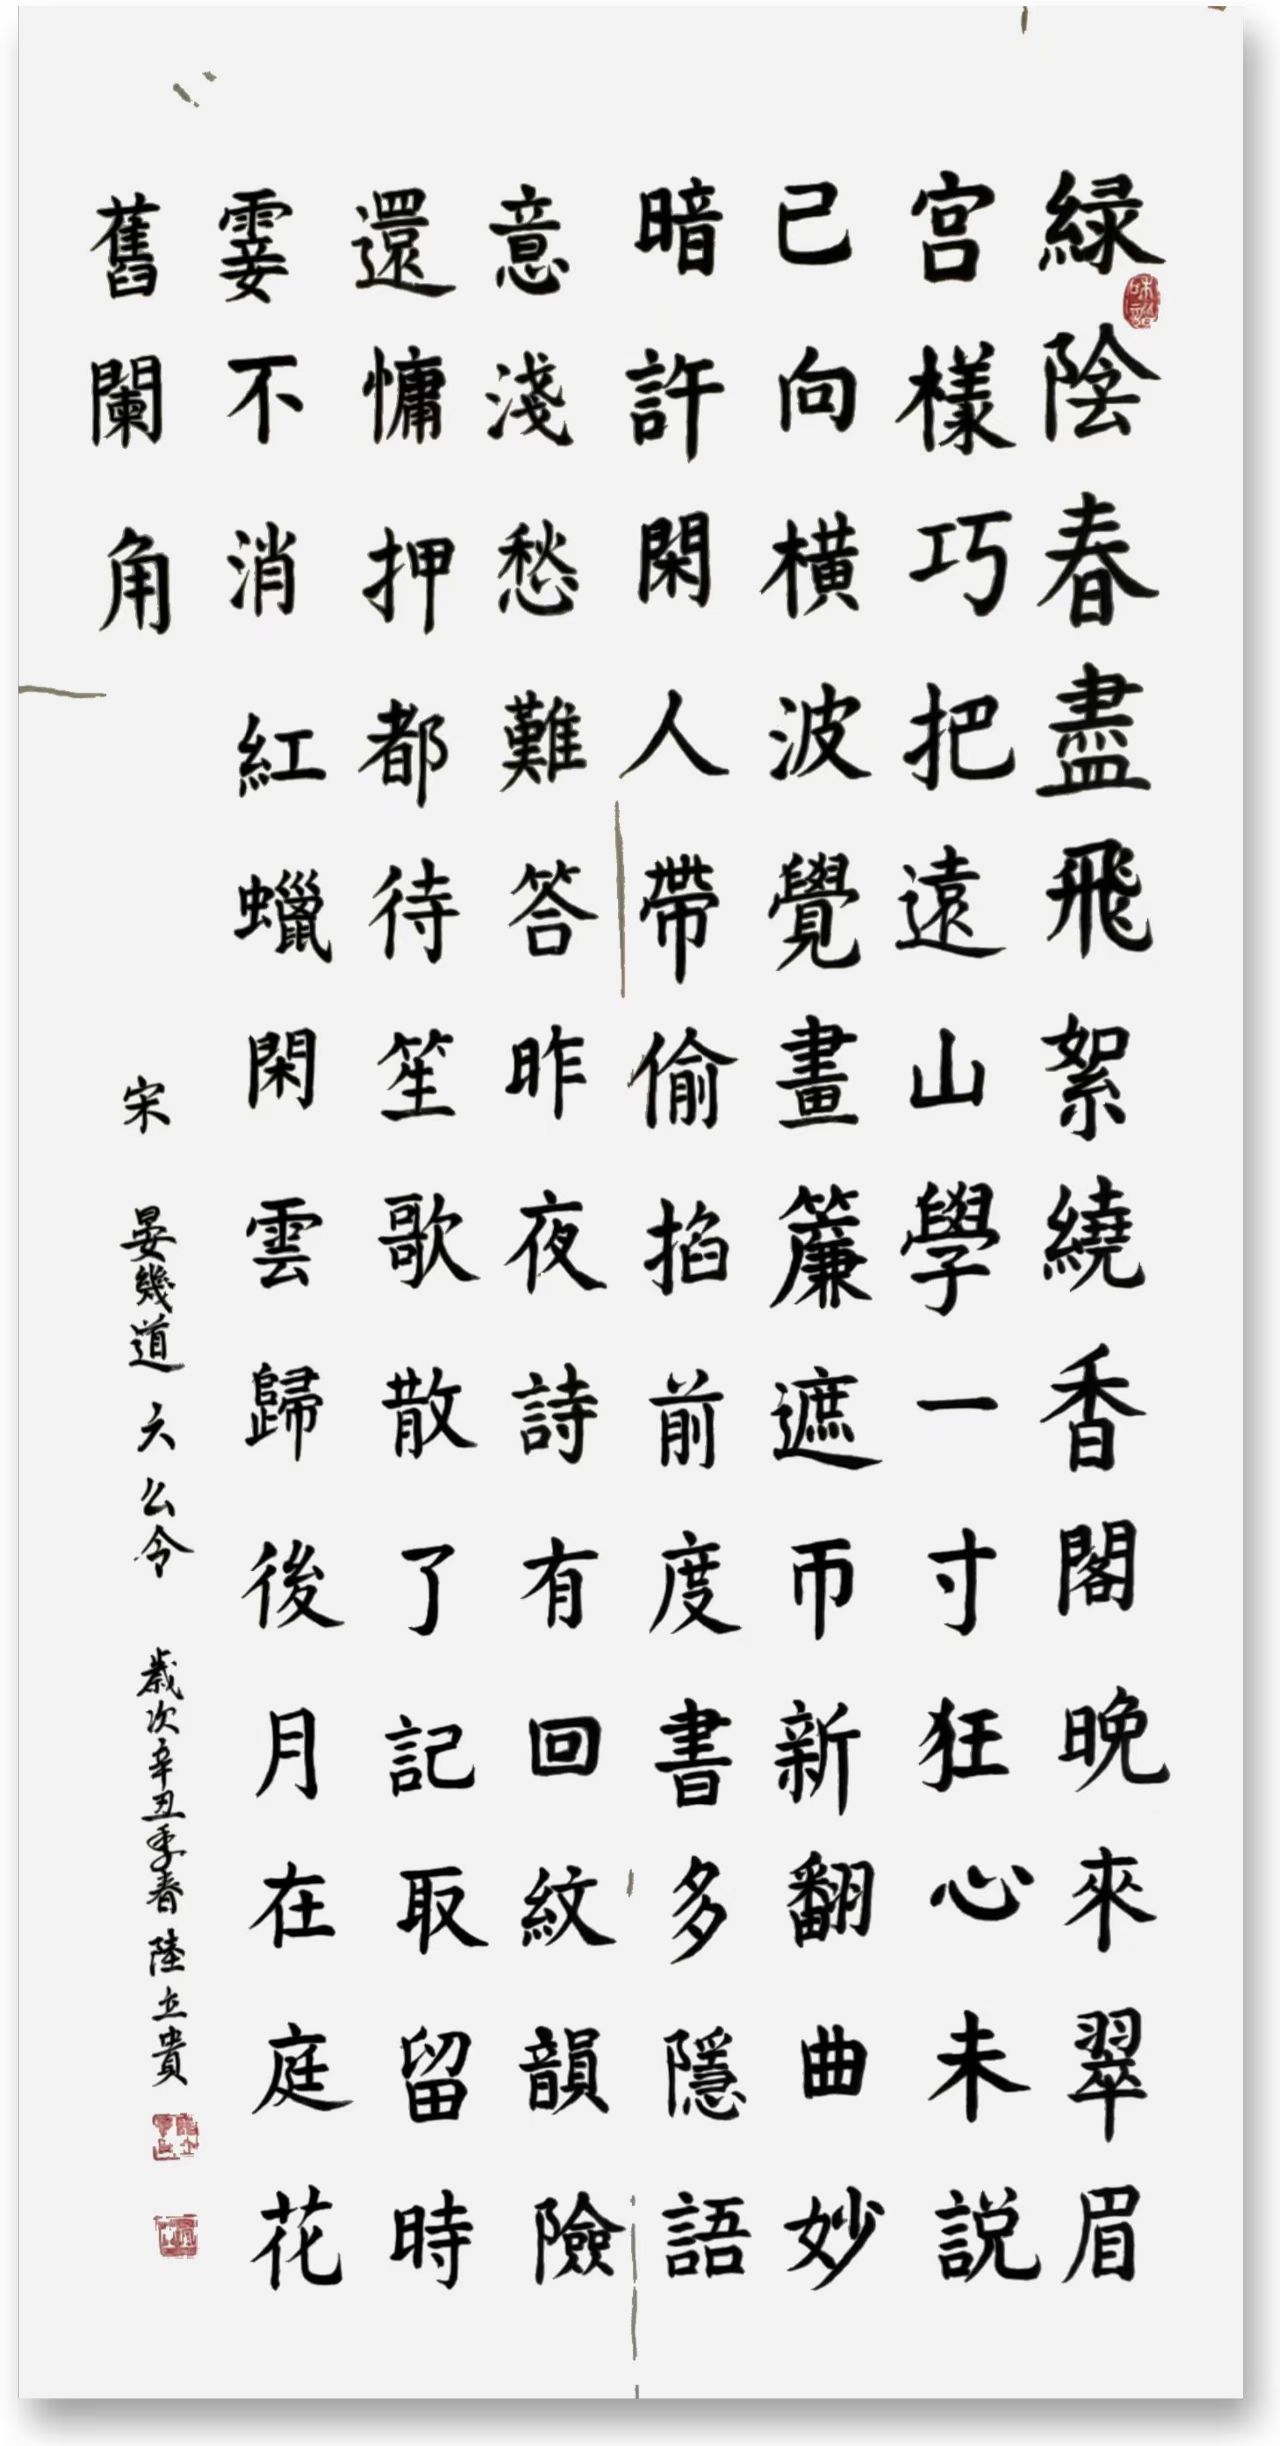 緑陰春盡飛絮繞香閣晚來翠眉
宫樣巧把遠山學一寸狂心未説
已向橫波覺畫簾遮帀新翻曲妙
暗許閑人帶偷掐前度書多隱語
意淺愁難答昨夜詩有回紋韻險
還慵押都待笙歌散了記取留時
霎不消紅蠟閑雲歸後月在庭花
舊闌角
宋 晏幾道 六么令 歲次辛丑季春 陸立貴